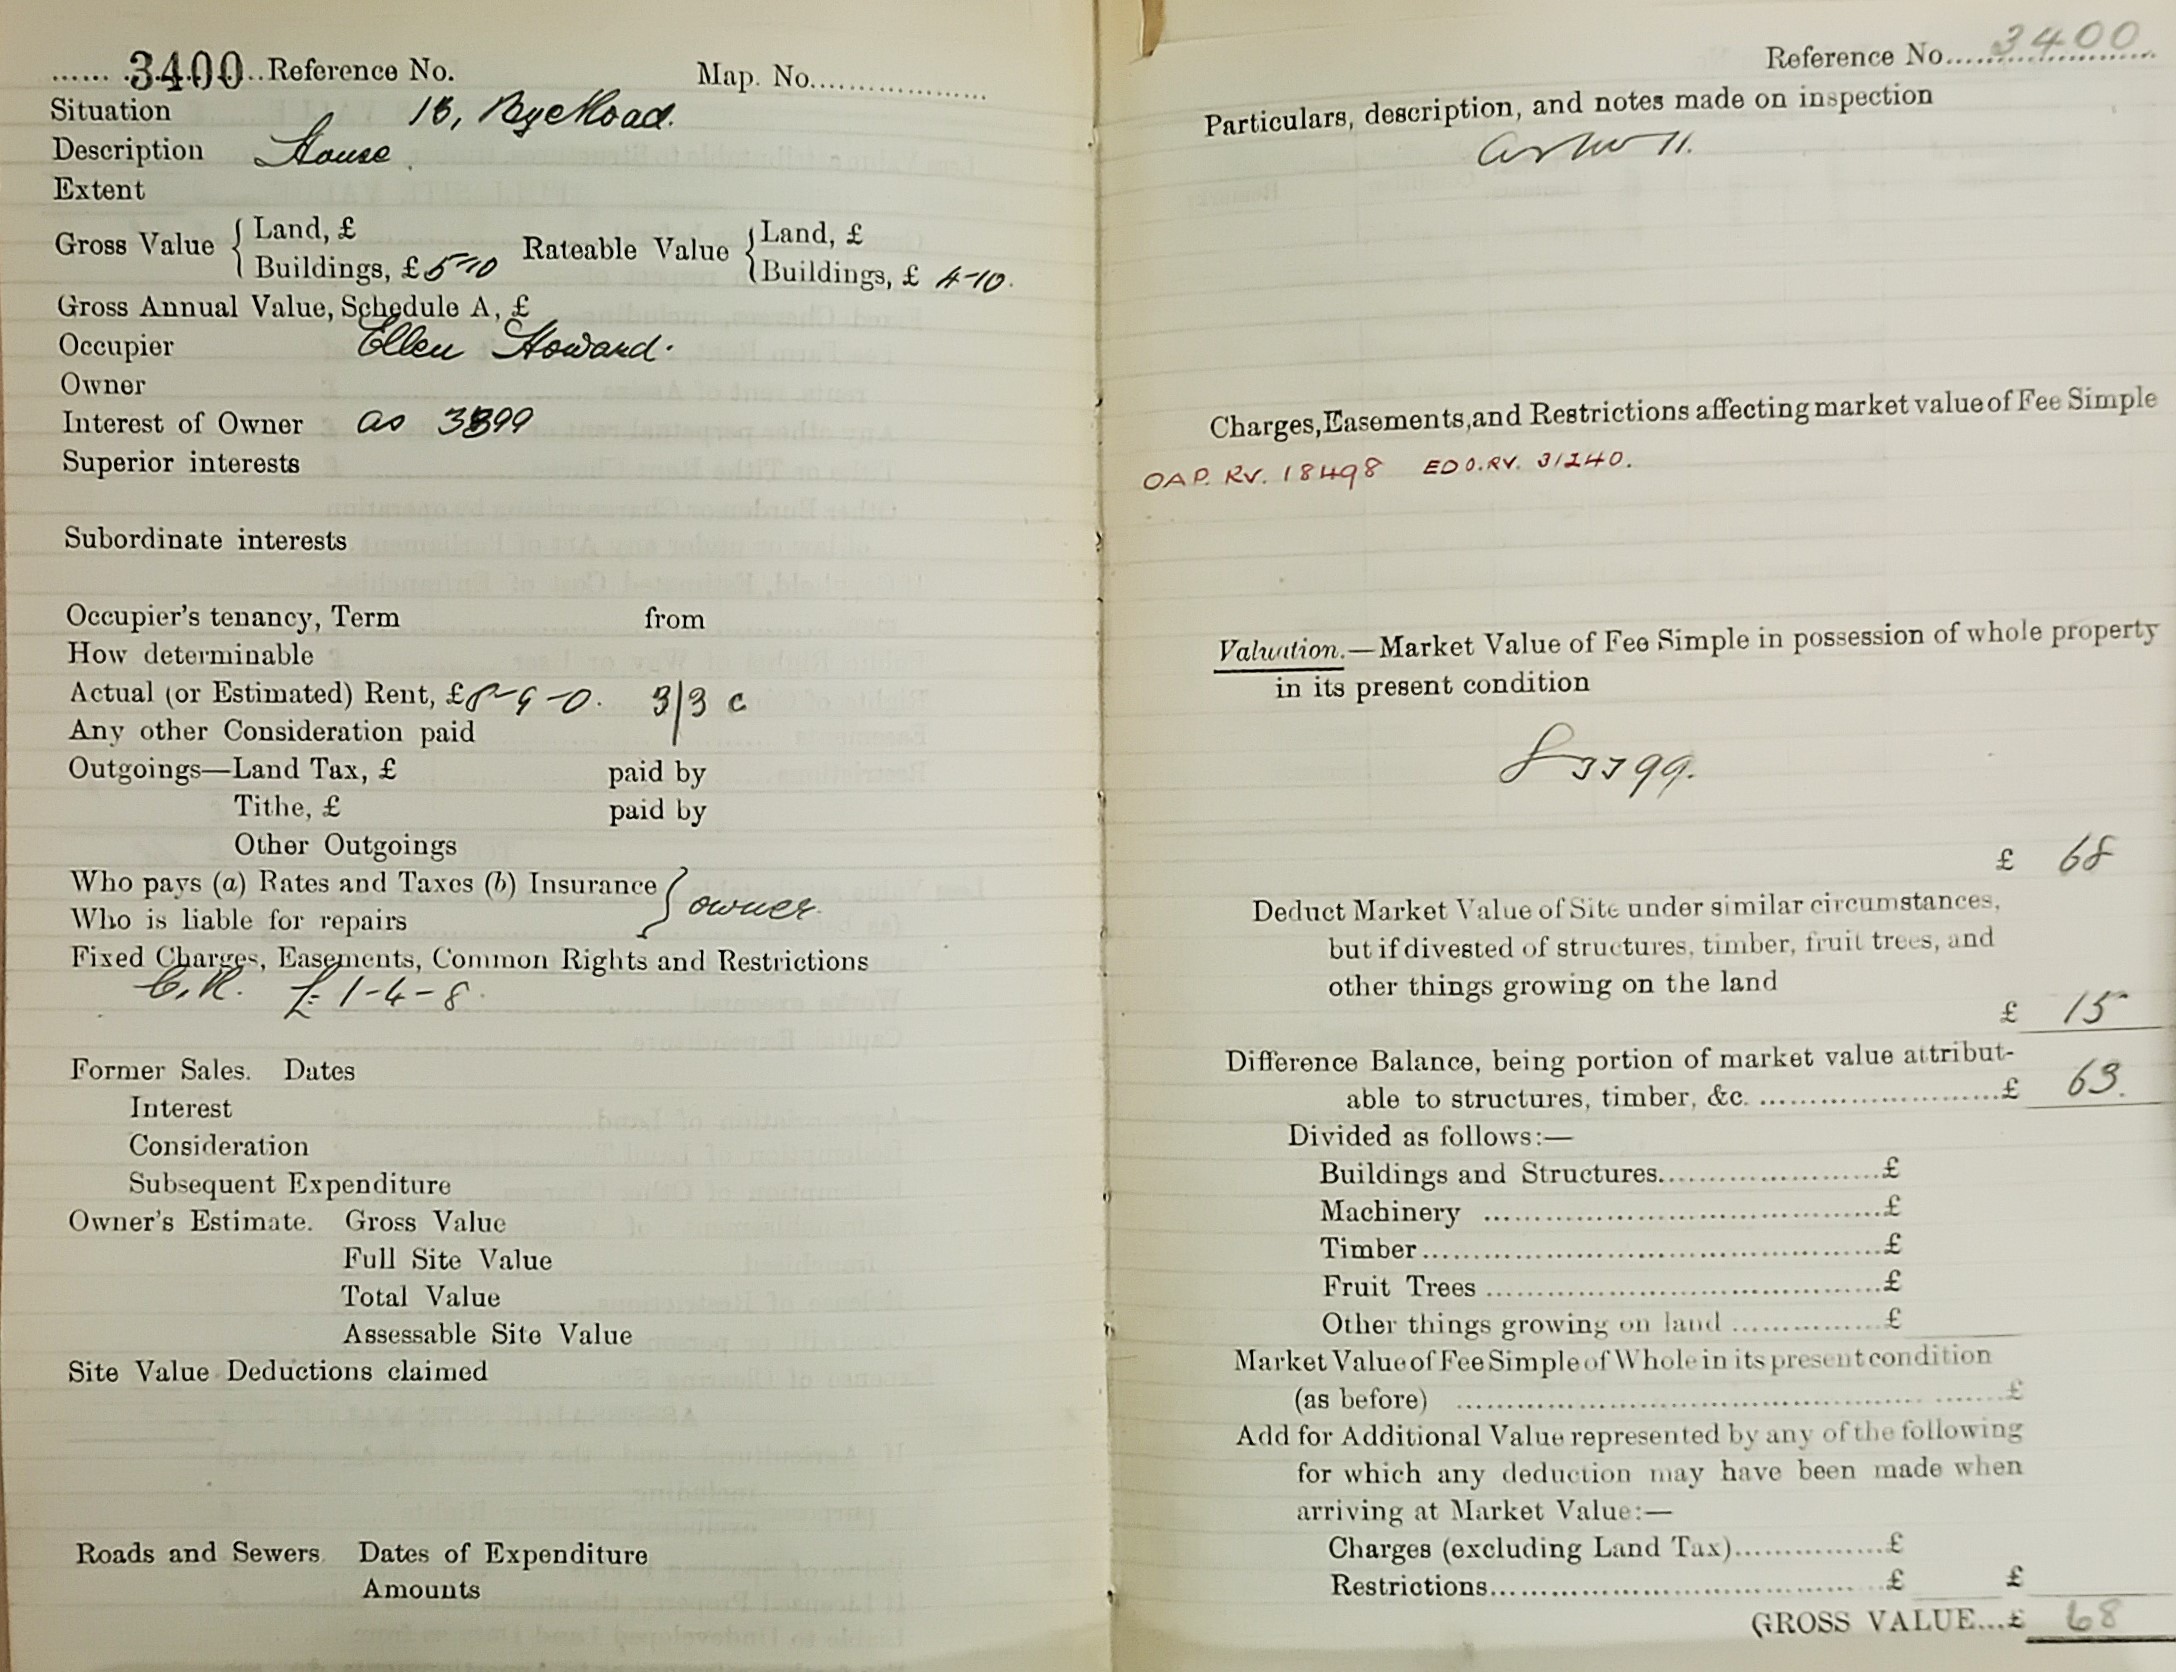 ...... 3400 .. Reference No. Map. No....................
Situation 13, Rye Road.
Description House.
Extent
Gross Value { Land, £ Rateable Value { Land, £
Buildings, £ 5-10 Buildings, £ 4-10.
Gross Annual Value, Schedule A, £
Occupier Ellen Howard.
Owner
Interest of Owner as 3399
Superior interests
Subordinate interests
Occupier's tenancy, Term from
How determinable
Actual (or Estimated) Rent, £8-9-0. 3/3 c
Any other Consideration paid
Outgoings—Land Tax, £ paid by
Tithe, £ paid by
Other Outgoings
Who pays (a) Rates and Taxes (b) Insurance } owner.
Who is liable for repairs
Fixed Charges, Easements, Common Rights and Restrictions
G.R. £1-4-8.
Former Sales. Dates
Interest
Consideration
Subsequent Expenditure
Owner's Estimate. Gross Value
Full Site Value
Total Value
Assessable Site Value
Site Value Deductions claimed
Roads and Sewers. Dates of Expenditure
Amounts
Reference No. 3400
Particulars, description, and notes made on inspection
as No 11.
Charges, Easements, and Restrictions affecting market value of Fee Simple
OAP. RV. 18498 EDO. RV. 31240.
Valuation.—Market Value of Fee Simple in possession of whole property
in its present condition
3399.
£ 68
Deduct Market Value of Site under similar circumstances,
but if divested of structures, timber, fruit trees, and
other things growing on the land
£ 15
Difference Balance, being portion of market value attribut-
able to structures, timber, &c. ........................£ 63.
Divided as follows:—
Buildings and Structures......................£
Machinery ........................................£
Timber..............................................£
Fruit Trees .......................................£
Other things growing on land ................£
Market Value of Fee Simple of Whole in its present condition
(as before) ......................................................£
Add for Additional Value represented by any of the following
for which any deduction may have been made when
arriving at Market Value:—
Charges (excluding Land Tax)................£
Restrictions.......................................£ £
GROSS VALUE...£ 68